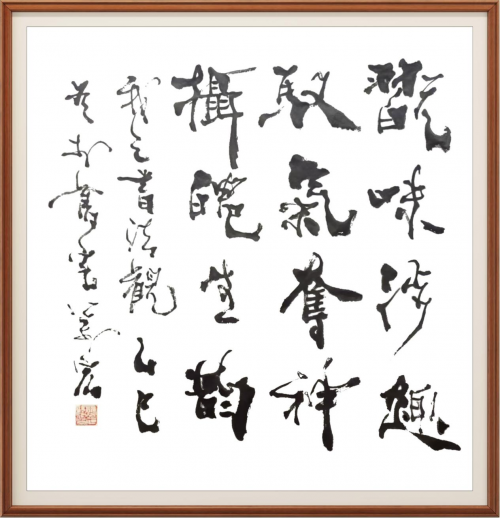 翫味涉趣
馭氣奪神
攝魄生韵
我之書法觀 乙巳